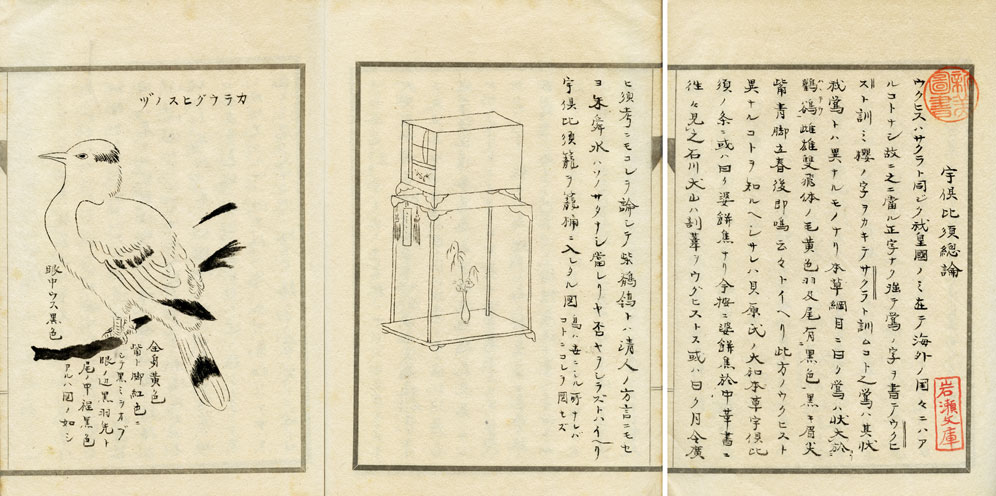 圖書
宇倶比須總論
ウグヒスハサクラト同ジク我皇國ノミ在テ海外ノ国々ニハア
ルコトナシ故ニ之ニ當ル正字ナク強テ鶯ノ字ヲ書テウクヒ
スト訓ミ櫻ノ字ヲカキテサクラト訓ムコト之鶯ハ其状
我鶯トハ異ナルモノナリ本草綱目ニ曰ク鶯ハ状大於
鸜鵒雌雄雙飛体ノ毛黄色羽及尾有黒色黒キ眉尖
觜青脚立春後即鳴云々トイヘリ此方ノウクヒスト
異ナルコトヲ知ルヘシサレハ貝原氏ノ大和本草宇倶比
須ノ条ニ或ハ曰ク婆餅焦ナリ今按ニ婆餅焦於中華書ニ
往々見之石川丈山ハ剖葦ヲウグヒストス或ハ曰ク月令廣
岩瀬文庫
ヒ須考ニモコレヲ論シテ柴鶺鴒トハ清人ノ方言ニモセ
ヨ朱舜水ハソノサタナシ當レリヤ否ヤヲシラズトイヘリ
宇倶比須籠ヲ籠桶ニ入レタル図
所ナレバ
コトニコレヲ図セズ
カラウグヒスノヅ
全身黄色
觜ト脚紅色ニ
シテ黒ミヲオブ
眼ノ辺黒羽先ト
尾ノ中程黒色
アルハ図ノ如シ
眼中ウス黒色